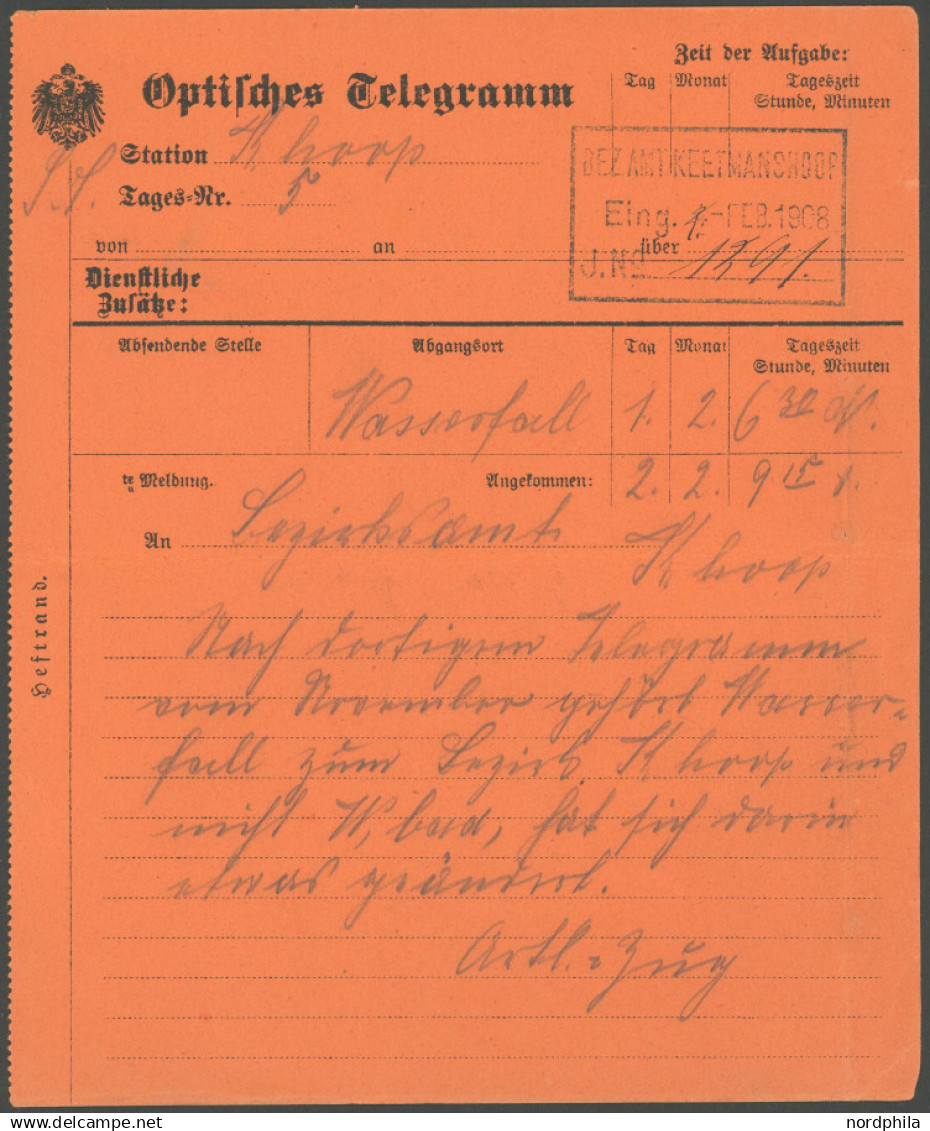 Zeit der Aufgabe:
Optisches Telegramm
Tag Monat Tageszeit
Stunde, Minuten
Station K hoop
BEZ AMT KEETMANSHOOP
Tages=Nr. 5
Eing. -FEB. 1908
von an über
J. No 1291.
Dienstliche
Zusätze:
Absendende Stelle Abgangsort Tag Monat Tageszeit
Stunde, Minuten
Wasserfall 1. 2. 6 30 N.
te Meldung. Angekommen: 2. 2. 9 15
An Bezirksamt
K hoop
Heftrand.
Nach dortigem Telegramm
vom November gehört Wasser=
fall zum Bezirk K hoop und
nicht W, bad, hat sich darin
etwas geändert.
Artl.=Zug
www.delcampe.net
nordphila